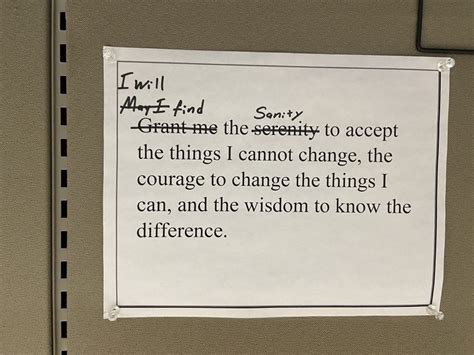 I will
May I find
Sanity
Grant me the serenity to accept
the things I cannot change, the
courage to change the things I
can, and the wisdom to know the
difference.